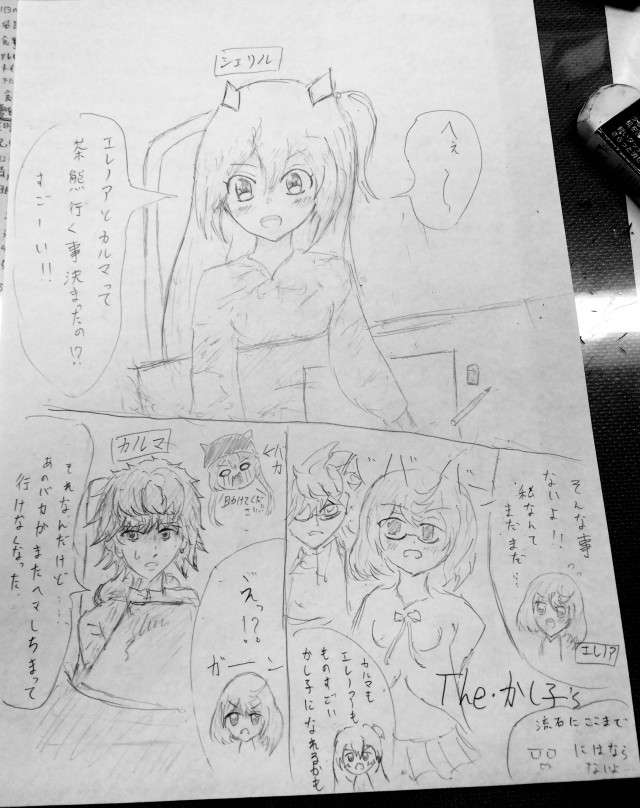 シェリル
へぇ〜
エレノアとカルマって
茶熊行く事決まったの!?
すごーい!!
そんな事
ないよ!!
私なんて
まだまだ…
エレノア
The・かし子's
流石にここまで
にはなら
ないよ
カルマも
エレノアーも
ものすごい
かし子になれるかも
カルマ
それなんだけど……
あのバカがまたヘマしちまって
行けなくなった
えっ!?
ガーン